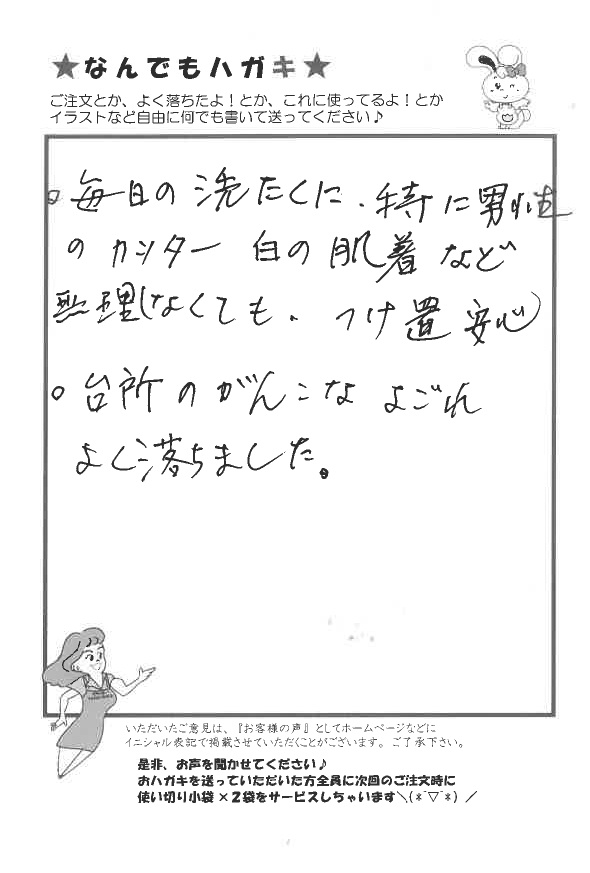 ★なんでもハガキ★
ご注文とか、よく落ちたよ！とか、これに使ってるよ！とか
イラストなど自由に何でも書いて送ってください♪
○毎日の洗たくに、特に男性
のカッター 白の肌着など
無理しなくても、つけ置安心
○台所のがんこなよごれ
よく落ちました。
いただいたご意見は、『お客様の声』としてホームページなどに
イニシャル表記で掲載させていただくことがございます。ご了承下さい。
是非、お声を聞かせてください♪
おハガキを送っていただいた方全員に次回のご注文時に
使い切り小袋×２袋をサービスしちゃいます＼(*ˆ▽ˆ*)／